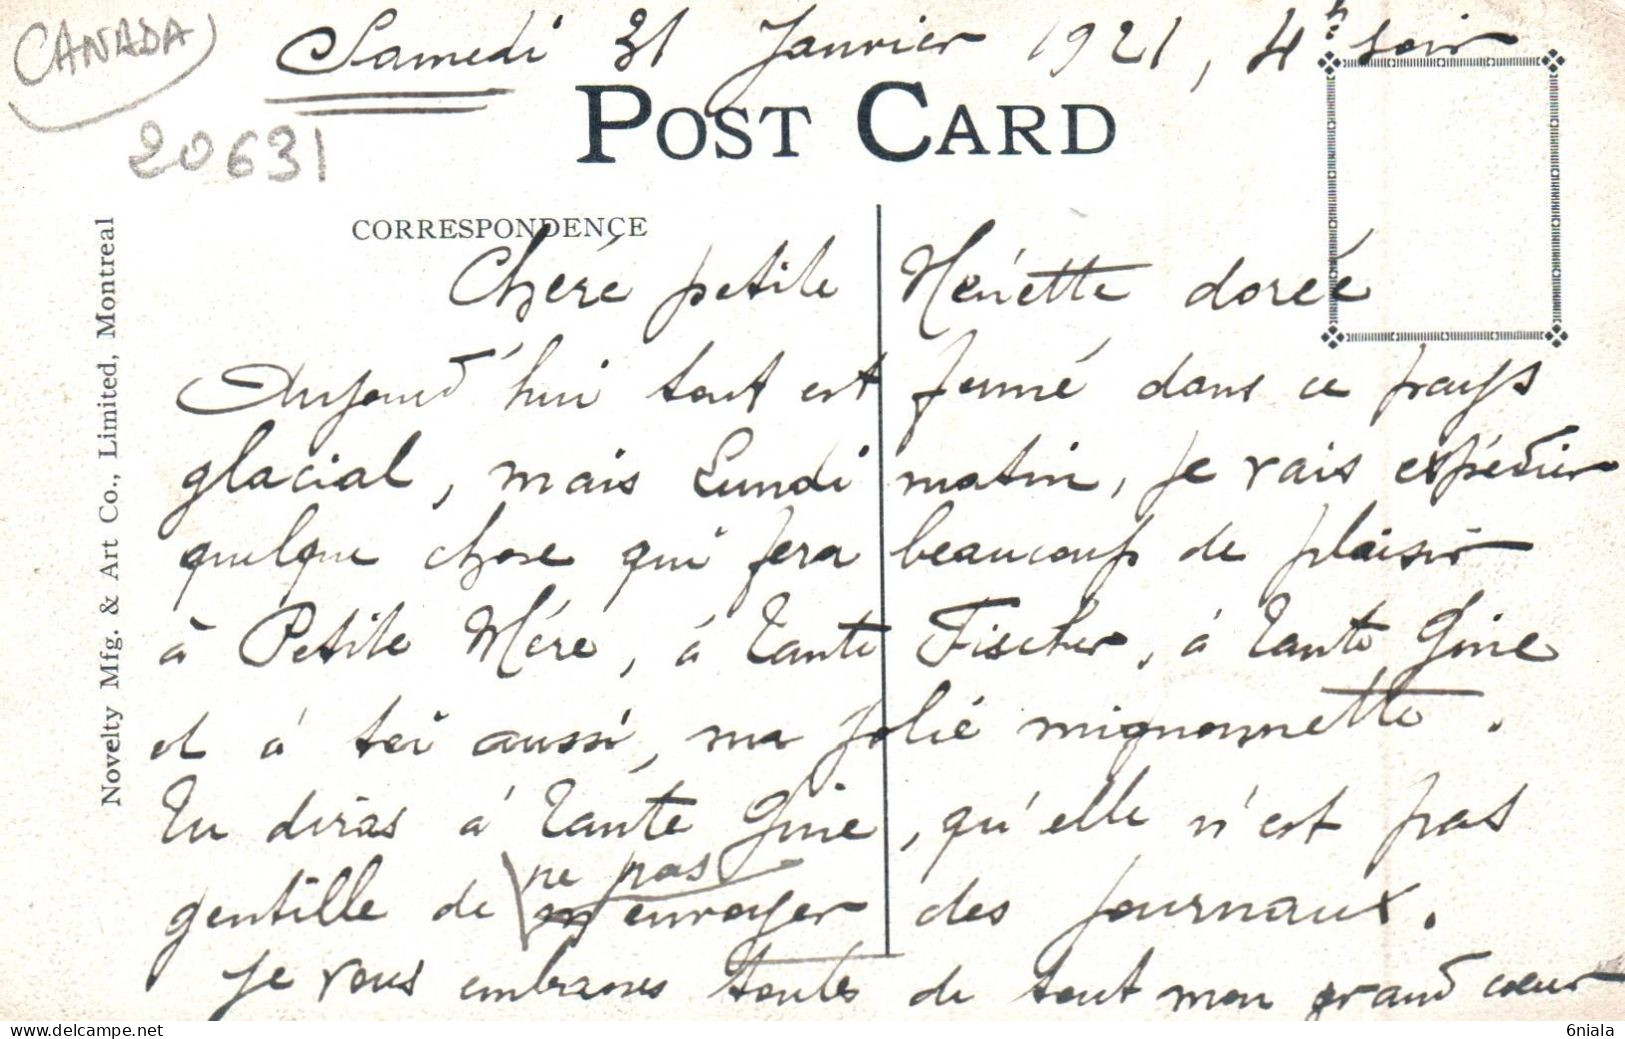 CANADA
Samedi 31 Janvier 1921, 4h soir
20631
POST CARD
CORRESPONDENCE
Novelty Mfg. & Art Co., Limited, Montreal
Chéré petite dorée
Aujourd'hui tout est fermé dans ce pays
glacial, mais Lundi matin, je vais expédier
quelque chose qui fera beaucoup de plaisir
à Petite Mère, à Tante Fischer, à Tante Gine
et à toi aussi, ma jolie mignonnette.
Tu diras à Tante Gine, qu'elle n'est pas
ne pas
gentille de m'envoyer des journaux.
Je vous embrasses toutes de tout mon grand coeur
6niala